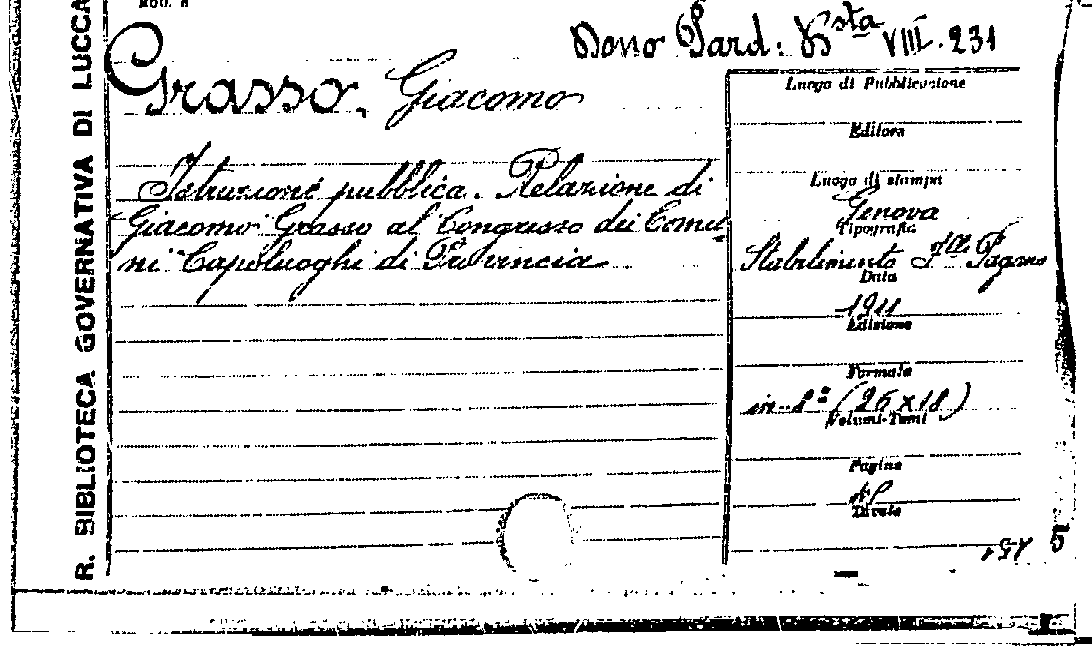 MOD. A
Dono Pard: Bsta VIII. 231
Grasso, Giacomo
Istruzione pubblica. Relazione di
Giacomo Grasso al Congresso dei Comu-
ni Capoluoghi di Provincia
Luogo di Pubblicazione
Editore
Luogo di stampa
Genova
Tipografia
Stabilimento Flli Pagano
Data
1911
Edizione
Formato
in-8º (26x18)
Volumi-Tomi
Pagine
Tavole
R. BIBLIOTECA GOVERNATIVA DI LUCCA